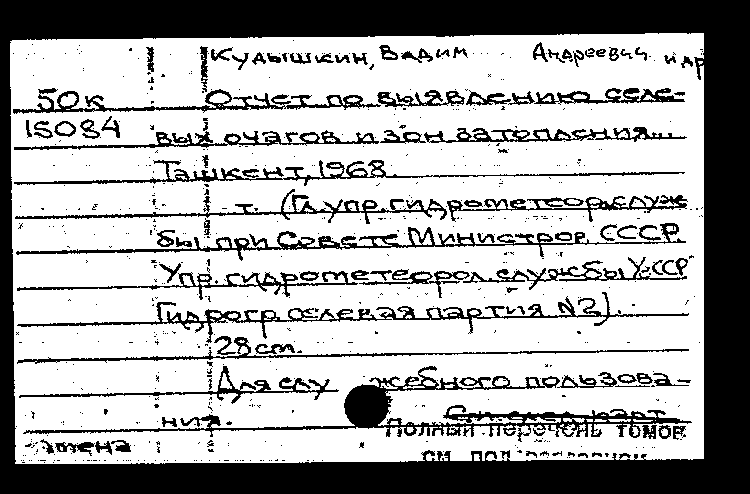 Кудышкин, Вадим Андреевич и др
50к Отчет по выявлению селе-
15084 вых очагов и зон затопления...
Ташкент, 1968.
т. (Гл. упр. гидрометеор. служ
бы при Совете Министров СССР.
Упр. гидрометеорол. службы УзССР
Гидрогр. селевая партия N2).
28 cm.
Для слу жебного пользова-
ния.
См. след. карт.
Полный перечень томов
см. под